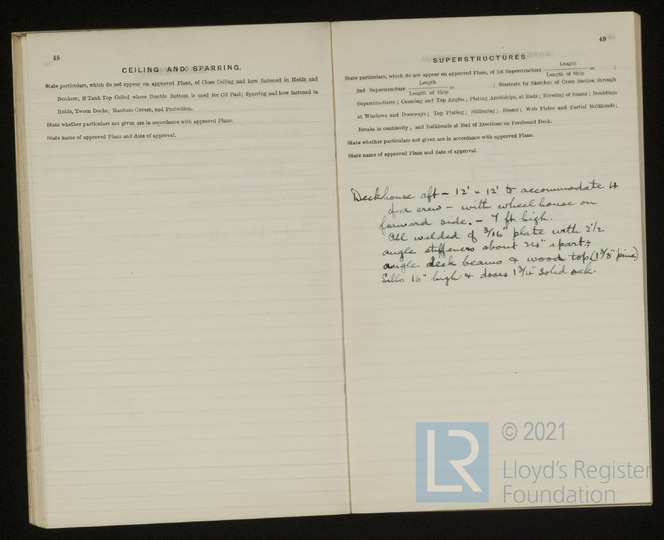 48
CEILING AND SPARRING.
State particulars, which do not appear on approved Plans, of Close Ceiling and how fastened in Holds and
Bunkers; if Tank Top Ceiled where Double Bottom is used for Oil Fuel; Sparring and how fastened in
Holds, Tween Decks; Manhole Covers, and Protection.
State whether particulars not given are in accordance with approved Plans.
State name of approved Plans and date of approval.
49
SUPERSTRUCTURES.
State particulars, which do not appear on approved Plans, of 1st Superstructure Length / Length of Ship = ;
2nd Superstructure Length / Length of Ship = ; Illustrate by Sketches of Cross Section through
Superstructures; Coaming and Top Angles; Plating Amidships, at Ends; Riveting of Seams; Doublings
at Windows and Doorways; Top Plating; Stiffening; Beams; Web Plates and Partial Bulkheads;
Breaks in continuity; and Bulkheads at End of Erections on Freeboard Deck.
State whether particulars not given are in accordance with approved Plans.
State name of approved Plans and date of approval.
Deckhouse aft - 12' x 12' to accommodate 4
of a crew - with wheelhouse on
forward side. - 7 ft high.
All welded of 3/16" plate with 2 1/2
angle stiffeners about 24" apart,
angle deck beams & wood top (1 5/8" pine)
Sills 16" high & doors 1 3/4" solid oak.
LR
© 2021
Lloyd's Register
Foundation